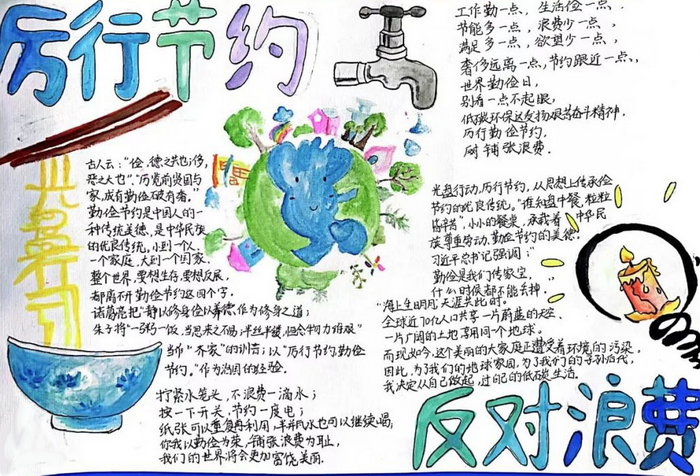 厉行节约
工作勤一点，生活俭一点，
节能多一点，浪费少一点，
满足多一点，欲望少一点，
奢侈远离一点，节约跟近一点，
世界勤俭日，
别看一点不起眼，
低碳环保这发扬艰苦奋斗精神，
厉行勤俭节约，
铺张浪费.
古人云："俭，德之共也；侈，
恶之大也".“历览前贤国与
家，成有勤俭破有奢。
勤俭节约是中国人的一
种传统美德，是中华民族
的优良传统，小到一个人、
一个家庭，大到一个国家、
整个世界，要想生存，要想发展，
都离不开勤俭节约这四个字.
诸葛亮把"静以修身俭以养德"作为修身之道；
朱子将"一粥一饭，当思来之不易；半丝半缕，恒念物力维艰"
当作"齐家"的训言；以"厉行节约，勤俭
节约。"作为治国的经验.
光盘行动
拧紧水笼头，不浪费一滴水；
按一下开关，节约一度电；
纸张可以重复再利用，半瓶水也可以继续喝；
你我以勤俭为荣，铺张浪费为耻，
我们的世界将会更加富饶美丽.
光盘行动，厉行节约，从思想上传承俭
节约的优良传统。"谁知盘中餐，粒粒
皆辛苦"，小小的餐桌，承载着中华民
族尊重劳动，勤俭节约的美德.
习近平总书记强调：
勤俭是我们传家宝，
什么时候都不能丢掉.
海上生明月，天涯共此时。
全球近70亿人口共享一片蔚蓝的天空
一片广阔的土地享用同一个地球。
而现如今，这个美丽的大家庭正遭受着环境的污染，
因此，为了我们的地球家园，为了我们的子孙后代，
我决定从自己做起，过自己的低碳生活。
反对浪费